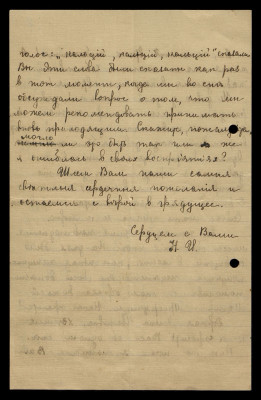 голос: "кальций, кальций, кальций" сказали
Вы эти слова были сказаны как раз
в тот момент, когда мы во сне
обсуждали вопрос о том, что мы
можем рекомендовать принимать
вновь приходящим. Скажите, пожалуйста,
могло ли это быть так или же
я ошиблась в своих восприятиях?
Шлем Вам наши самые
светлые сердечные пожелания и
остаемся с верой в грядущее.
Сердцем с Вами